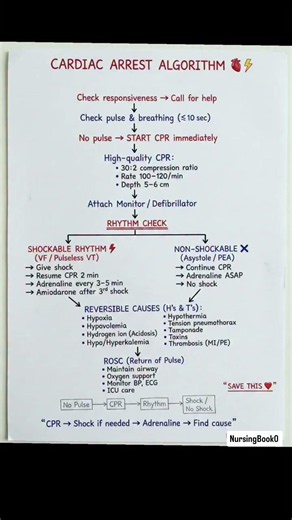 CARDIAC ARREST ALGORITHM 🫀⚡
Check responsiveness → Call for help
Check pulse & breathing (≤10 sec)
No pulse → START CPR immediately
High-quality CPR:
• 30:2 compression ratio
• Rate 100-120/min
• Depth 5-6 cm
Attach Monitor / Defibrillator
RHYTHM CHECK
SHOCKABLE RHYTHM ⚡
(VF / Pulseless VT)
→ Give shock
→ Resume CPR 2 min
→ Adrenaline every 3-5 min
→ Amiodarone after 3rd shock
NON-SHOCKABLE ✖
(Asystole / PEA)
→ Continue CPR
→ Adrenaline ASAP
→ No shock
REVERSIBLE CAUSES (H's & T's):
• Hypoxia
• Hypovolemia
• Hydrogen ion (Acidosis)
• Hypo/Hyperkalemia
• Hypothermia
• Tension pneumothorax
• Tamponade
• Toxins
• Thrombosis (MI/PE)
ROSC (Return of Pulse)
• Maintain airway
• Oxygen support
• Monitor BP, ECG
• ICU care
"SAVE THIS ❤"
No Pulse → CPR → Rhythm → Shock / No Shock
"CPR → Shock if needed → Adrenaline → Find cause"
NursingBook0